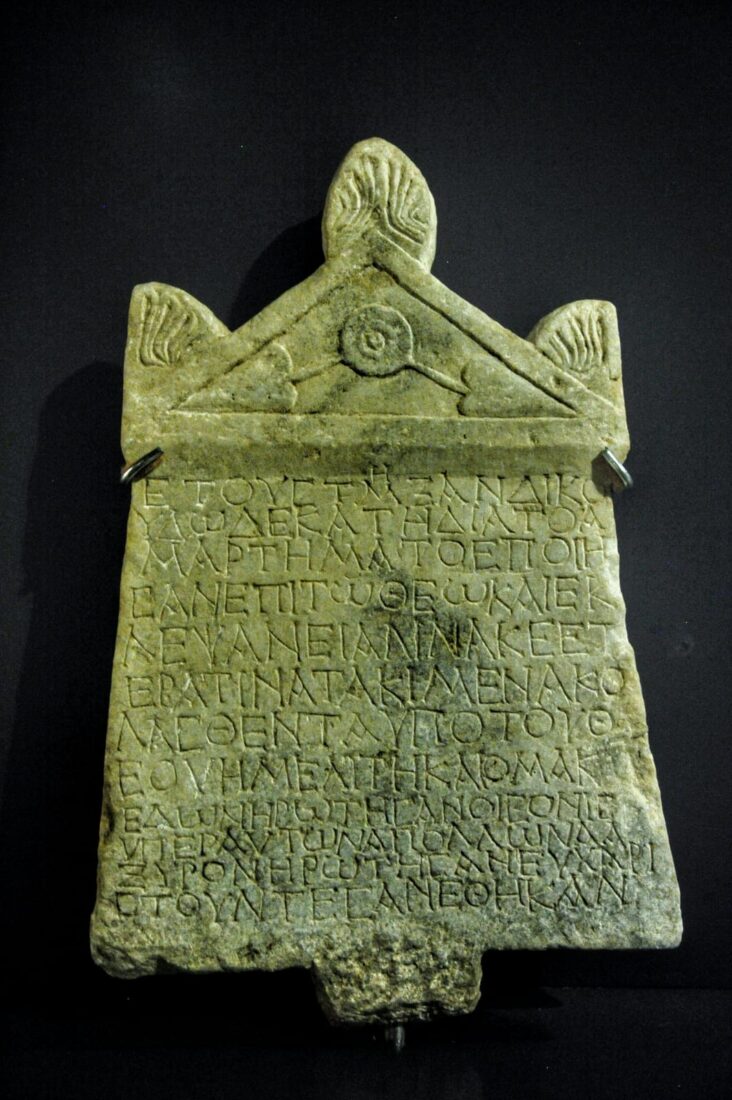 ΕΤΟΥϹΤΜΗΞΑΝΔΙΚΟ
ΥΔΩΔΕΚΑΤΗΔΙΑΤΟΑ
ΜΑΡΤΗΜΑΤΟΕΠΟΙΗ
ϹΑΝΕΠΙΤΩΘΕΩΚΑΙΕΚ
ΛΕΨΑΝΕΙΑΛΙΝΑΚΕΕΤ
ΕΡΑΤΙΝΑΤΑΚΙΜΕΝΑΚΟ
ΛΑϹΘΕΝΤΑΥΠΟΤΟΥΘ
ΕΟΥΗΜΕΛΙΤΗΚΑΙΟΜΑΚ
ΕΔΩΝΗΡΩΤΗϹΑΝΟΙΓΟΝΙϹ
ΥΠΕΡΑΥΤΩΝΑΠΟΛΛΩΝΑΛΑ
ΞΥΡΟΝΗΡΩΤΗϹΑΝΕΥΧΑΡΙ
ϹΤΟΥΝΤΕϹΑΝΕΘΗΚΑΝ